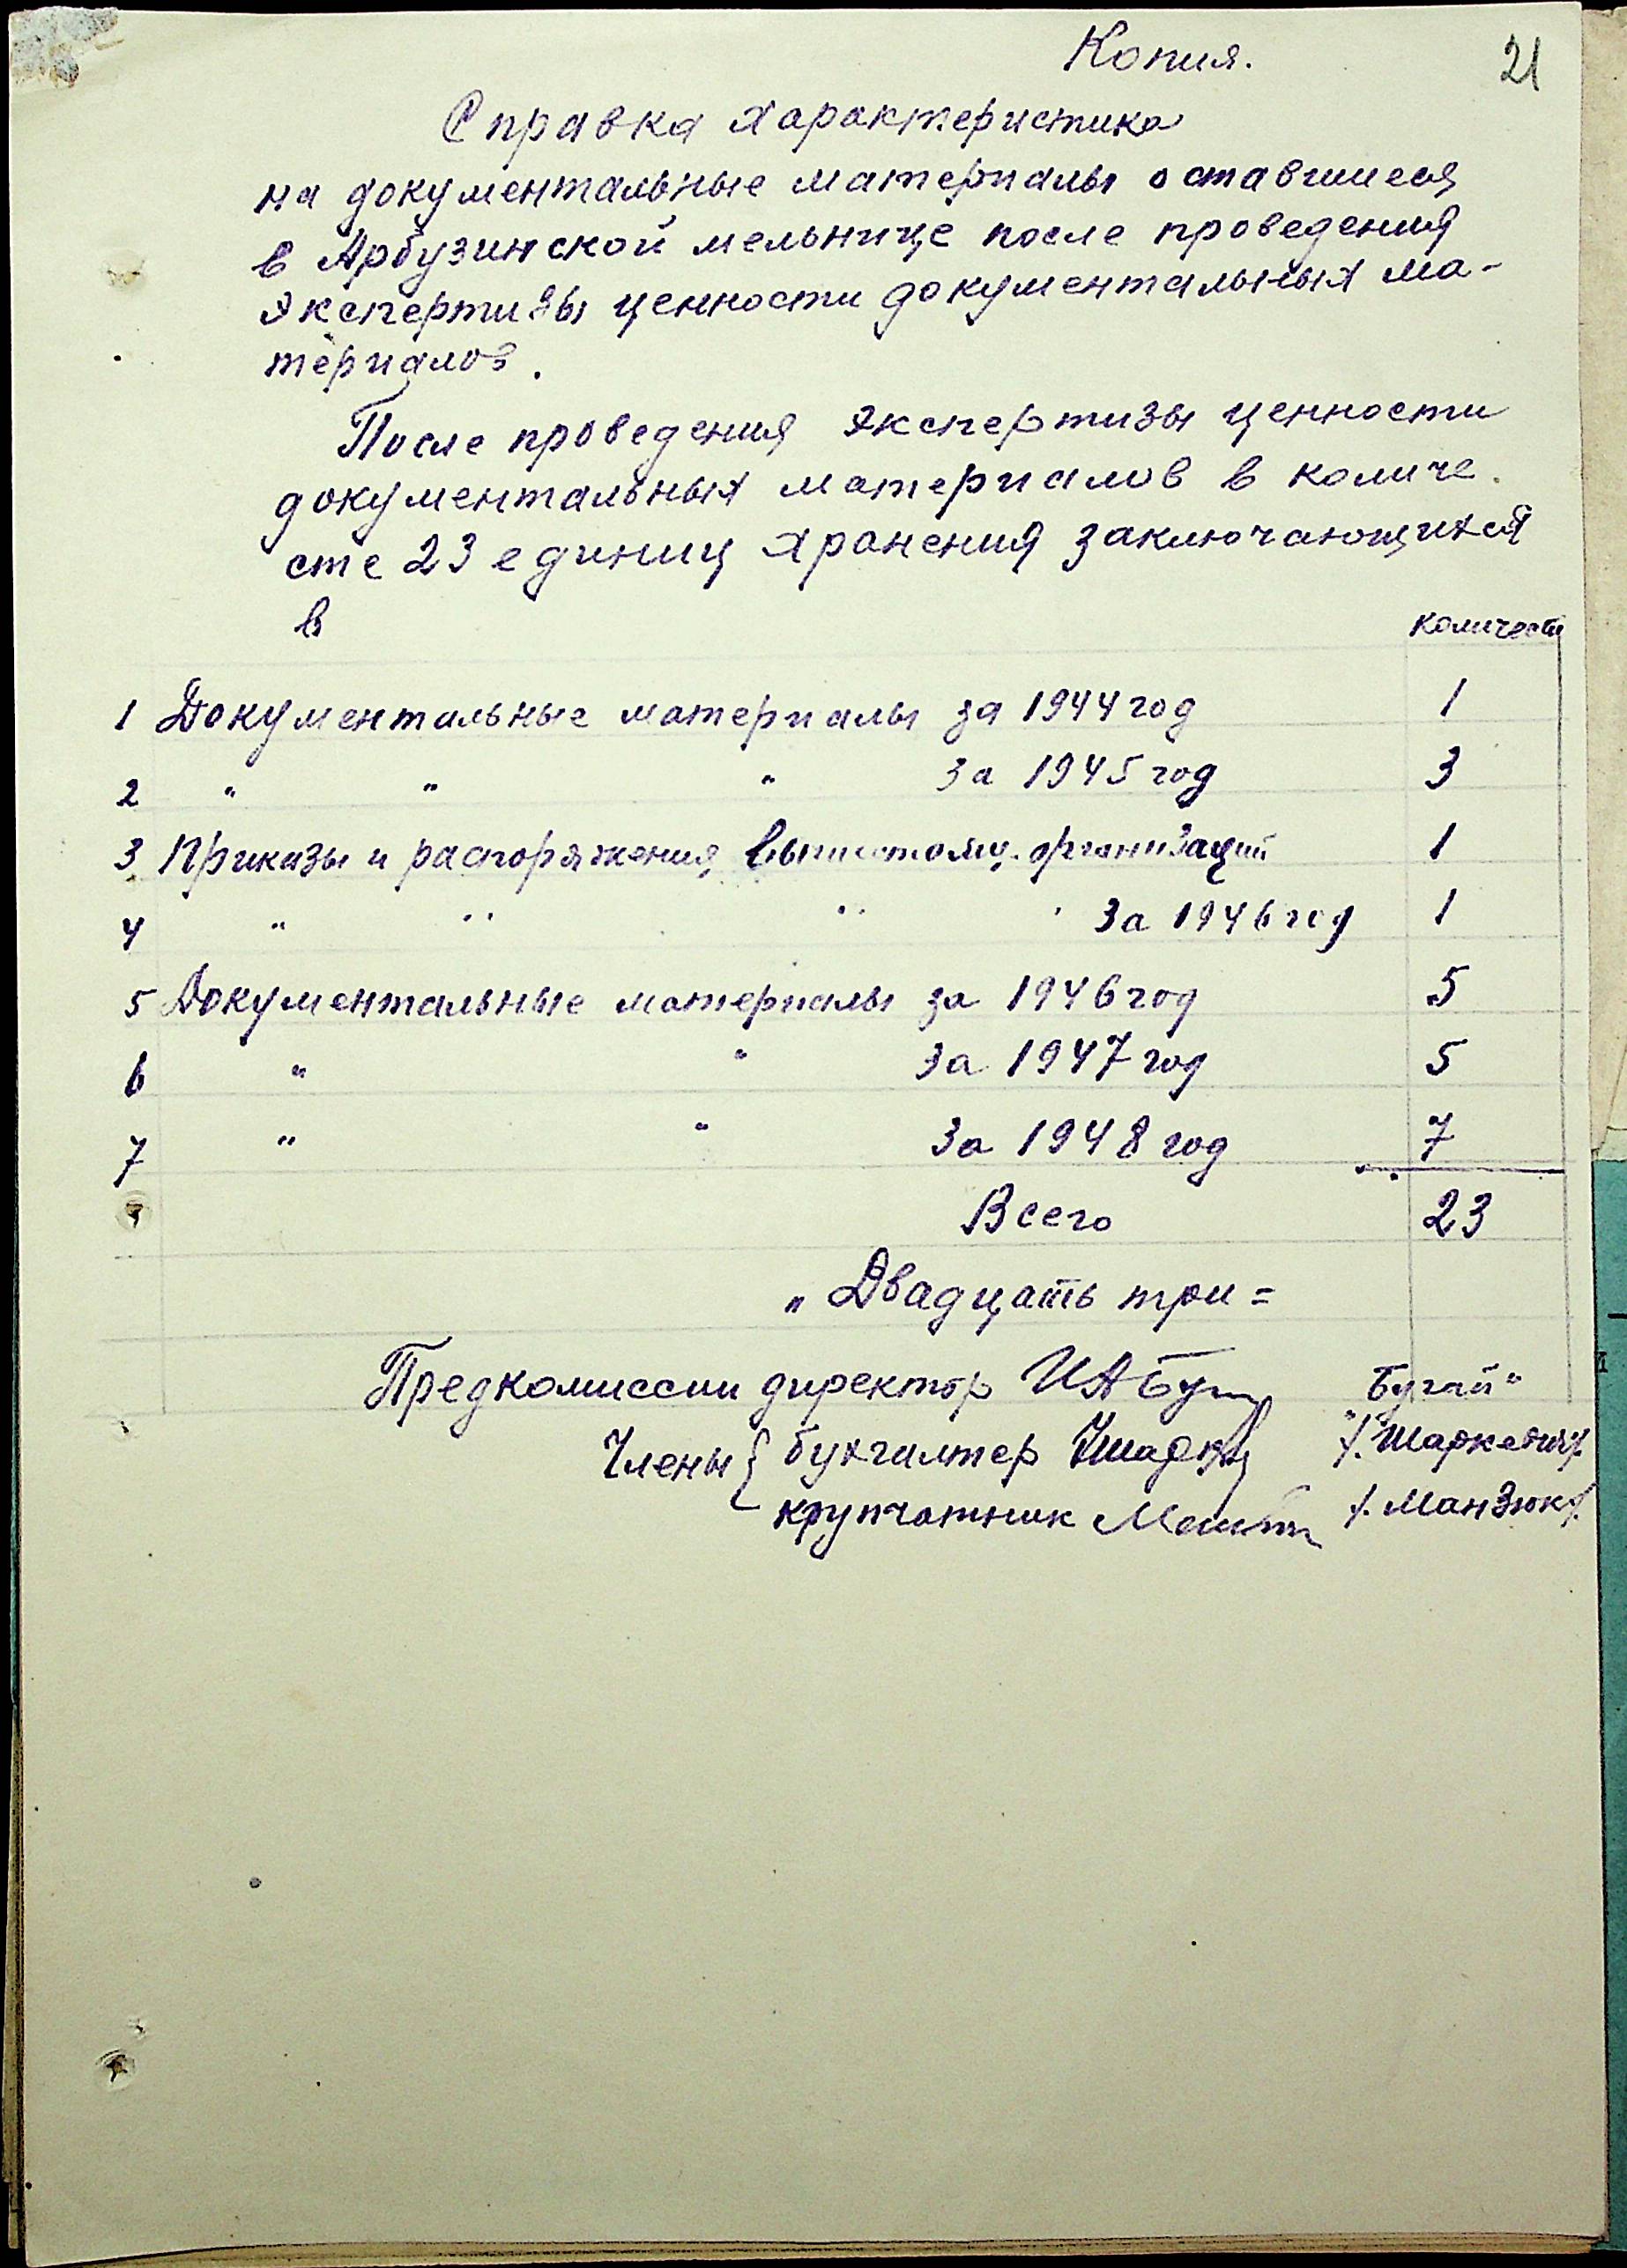 Копия.
21
Справка характеристика
на документальные материалы оставшиеся
в Арбузинской мельнице после проведения
экспертизы ценности документальных ма-
териалов.
После проведения экспертизы ценности
документальных материалов в количе-
сте 23 единиц хранения заключающихся
в
количеств
1 Документальные материалы за 1944 год 1
2 " " " за 1945 год 3
3 Приказы и распоряжения организаций 1
4 " " " " за 1946 год 1
5 Документальные материалы за 1946 год 5
6 " " за 1947 год 5
7 " " за 1948 год 7
Всего 23
„ Двадцать три =
Предкомиссии директор Бугай"
Члены { бухгалтер /.Шаркевич/.
крупчатник /.Манзюк/.